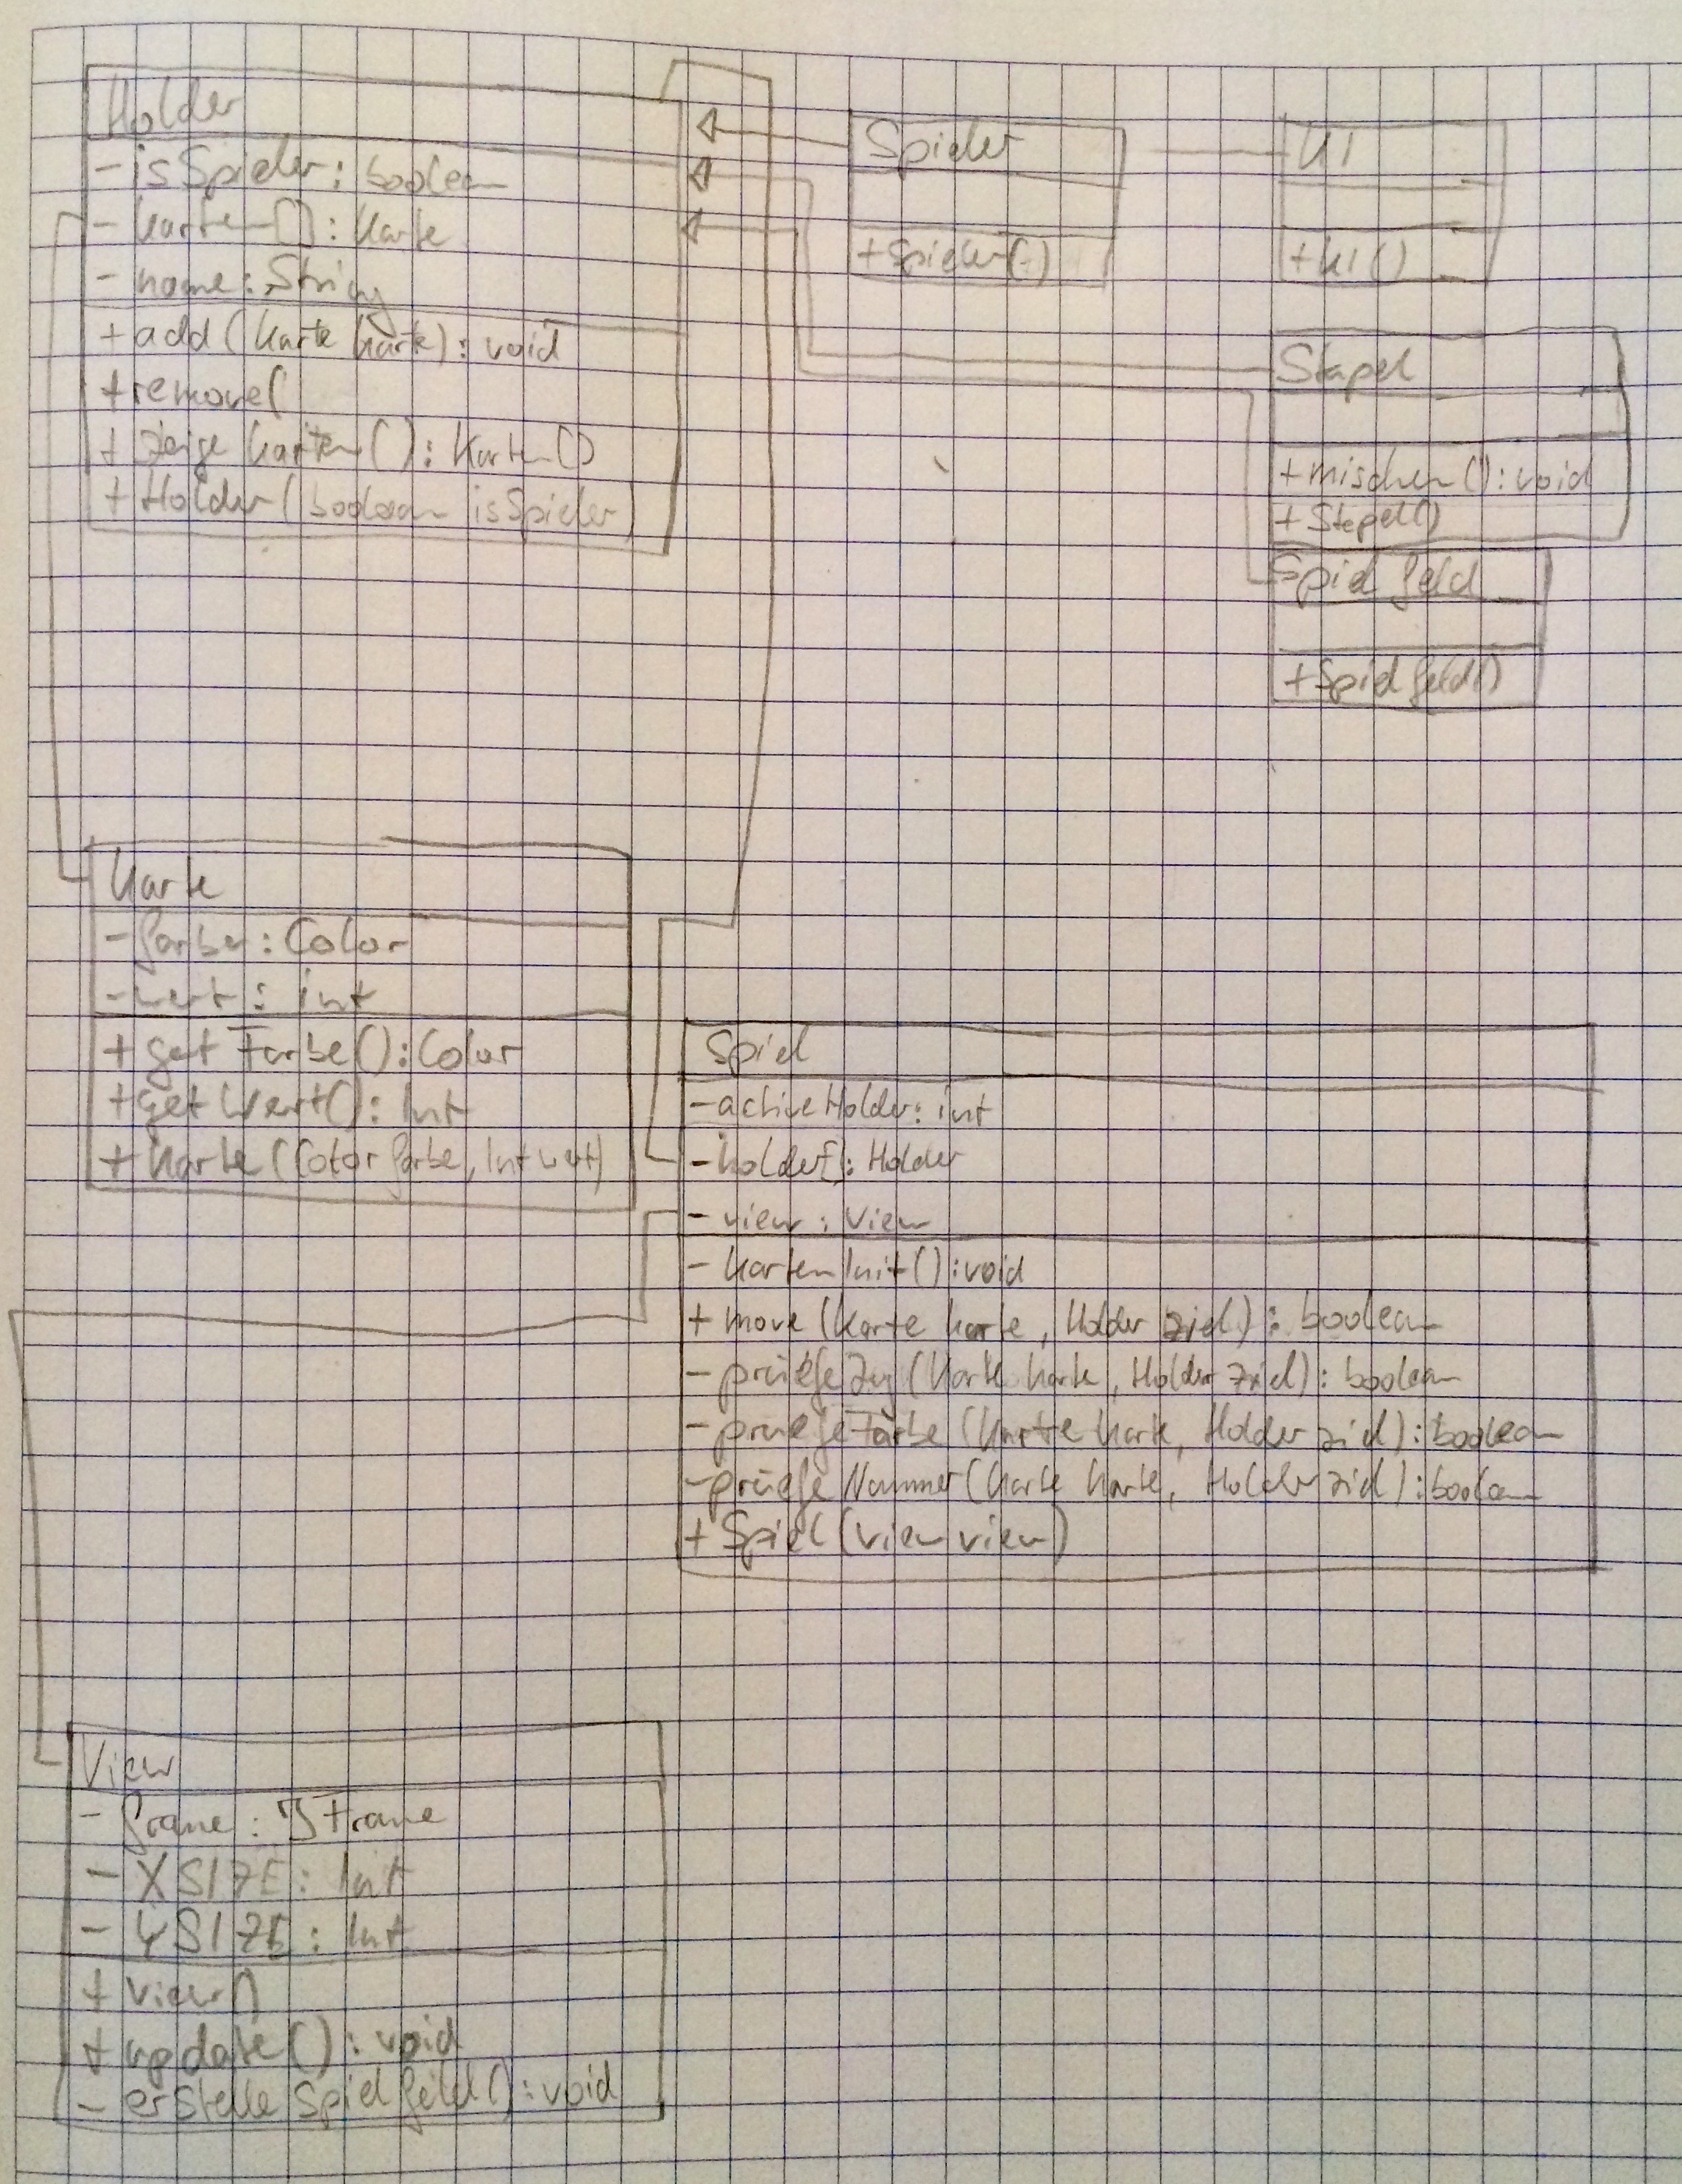 Holder
- isSpieler: boolean
- karten[]: Karte
- name: String
+ add(Karte karte): void
+ remove(
+ zeige karten(): Karten()
+ Holder(boolean isSpieler)
Spieler
+ Spieler()
KI
+ KI()
Stapel
+ mischen(): void
+ Stapel()
Spielfeld
+ Spielfeld()
Karte
- farbe: Color
- wert: int
+ getFarbe(): Color
+ getWert(): Int
+ Karte(Color farbe, Int wert)
Spiel
- activeHolder: int
- holder[]: Holder
- view: View
- kartenInit(): void
+ move (Karte karte, Holder ziel): boolean
- prüefe Zug (Karte karte, Holder ziel): boolean
- prüefe Farbe (Karte karte, Holder ziel): boolean
- prüefe Nummer (Karte karte, Holder ziel): boolean
+ Spiel (View view)
View
- frame: JFrame
- XSIZE: Int
- YSIZE: Int
+ View()
+ update(): void
- erstelle Spielfeld(): void